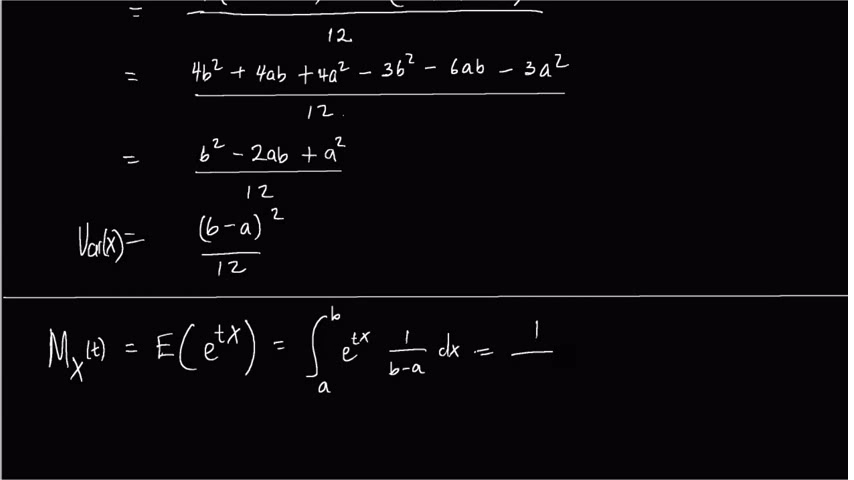 = 12
= 4b² + 4ab + 4a² - 3b² - 6ab - 3a² / 12
= b² - 2ab + a² / 12
Var(x) = (b-a)² / 12
M_X(t) = E(e^{tX}) = ∫_a^b e^{tx} 1/(b-a) dx = 1/